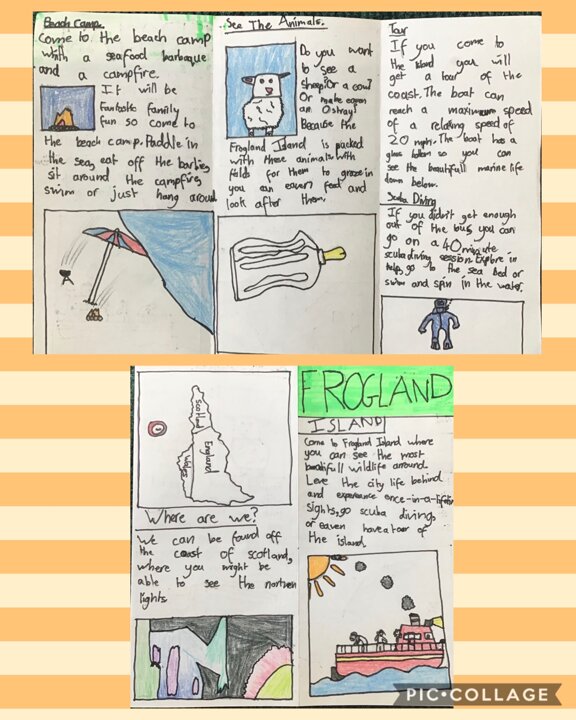 Beach Camp.
Come to the beach camp
with a seafood barbaque
and a campfire.
It will be
Funtastic family
fun so come to
the beach camp. Paddle in
the sea, eat off the barbies,
sit around the campfire,
swim or just hang around
See The Animals.
Do you want
to see a
sheep? Or a cow?
Or
an Ostray?
Because the
Frogland Island is packed
with these animals with
feilds for them to graze in
you can eaven feed and
look after them.
Tour
If you come to
the Island you will
get a tour of the
coast. The boat can
reach a maximum speed
of a relaxing speed of
20 mph. The boat has a
glass bottom so you can
see the beautifull marine life
down below.
Scuba Diving
If you didn't get enough
out of the you can
go on a 40 minute
scuba diving session. Explore in
go to the sea bed or
swim and spin in the water.
Scotland
England
Wales
Where are we?
We can be found off
the coast of scotland,
where you might be
able to see the northen
lights.
FROGLAND
ISLAND
Come to Frogland Island where
you can see the most
beautifull wildlife arround.
Leve the city life behind
and experience once-in-a-lifetime
sights, go scuba diving,
or eaven have a tour of
the island.
PIC•COLLAGE